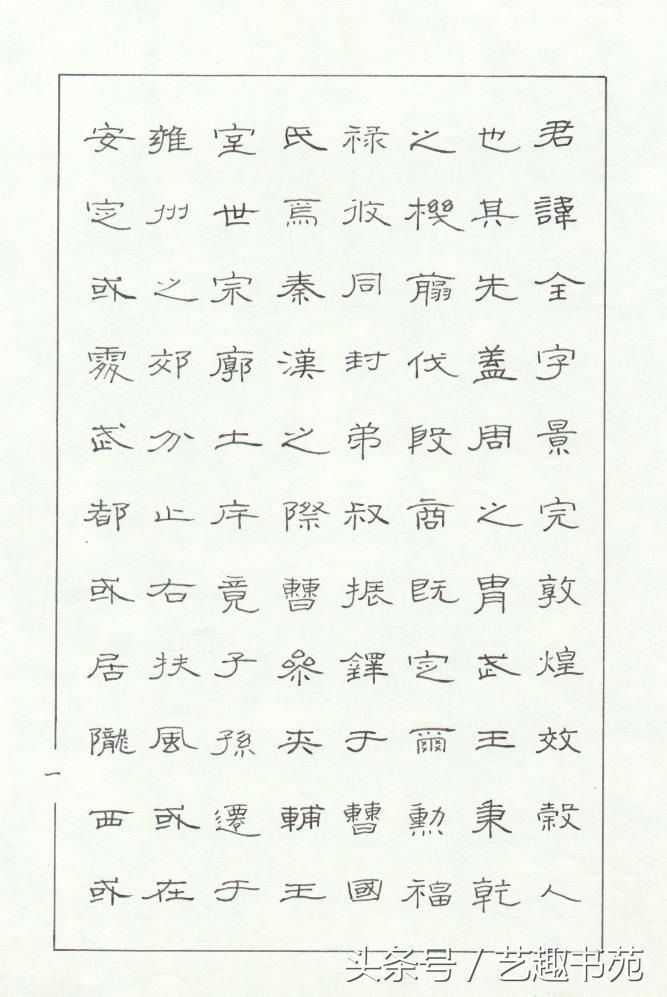 君諱全字景完敦煌效穀人
也其先蓋周之胄武王秉乾
之機翦伐殷商既定爾勳福
祿攸同封弟叔振鐸于曹國
氏焉秦漢之際曹參夾輔王
室世宗廓土斥竟子孫遷于
雍州之郊分止右扶風或在
安定或處武都或居隴西或
一
头条号 / 艺趣书苑